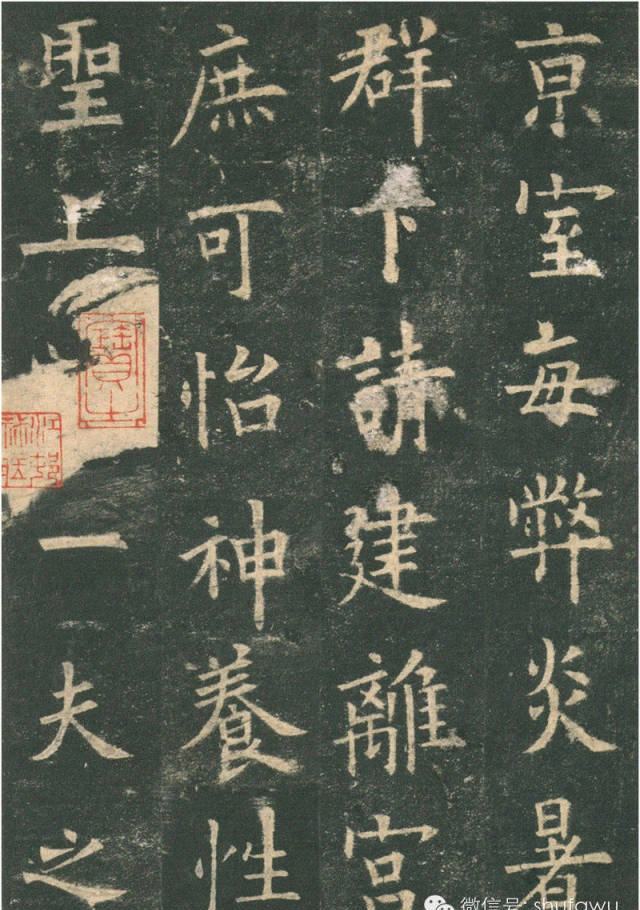 亰室每弊炎暑
群下請建離宮
庶可怡神養性
聖上一夫之
微信号: shufawu